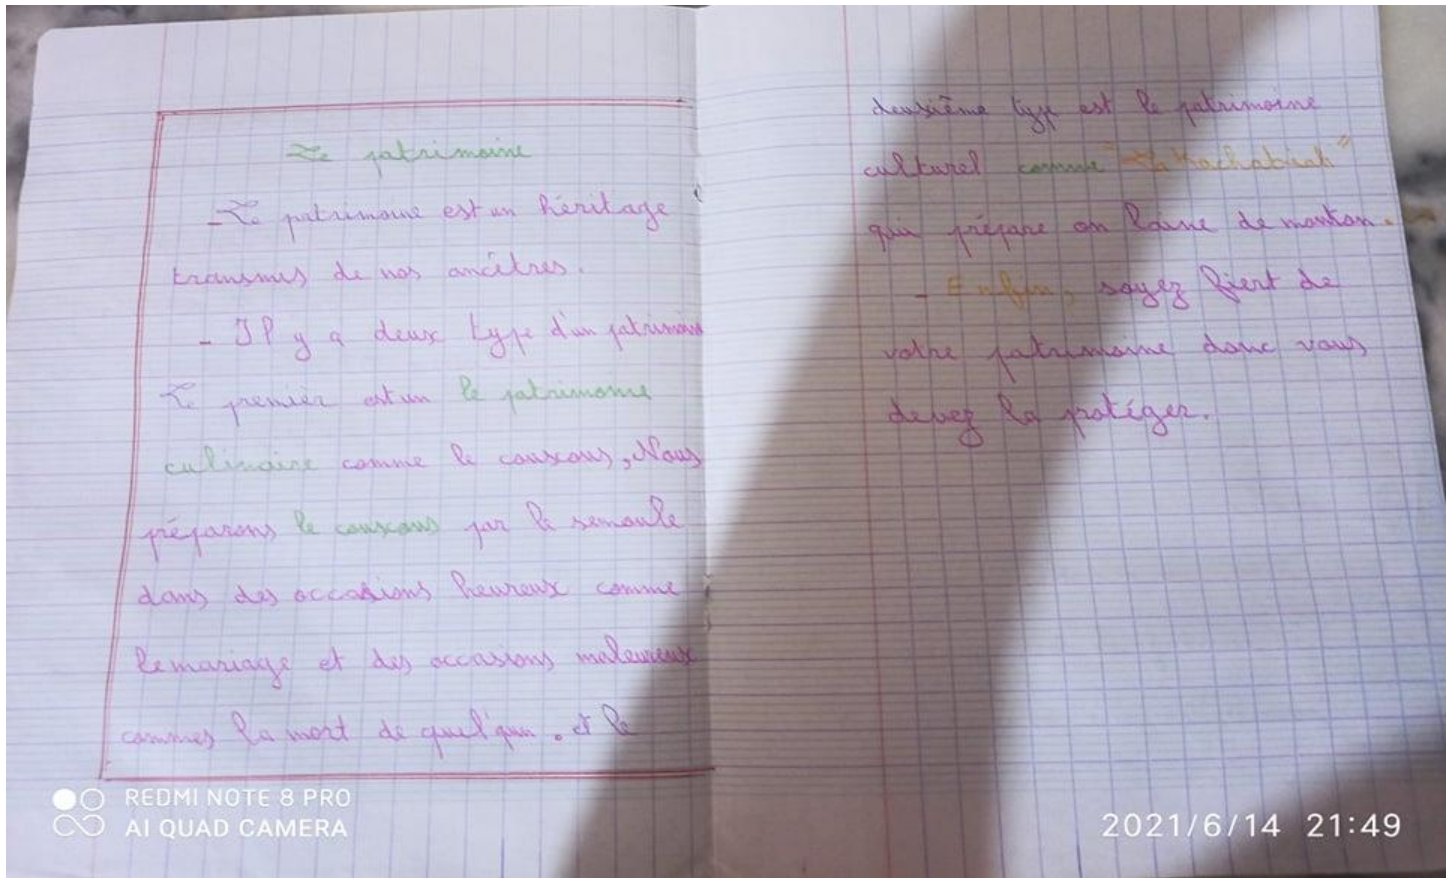 Le patrimoine
- Le patrimoine est un héritage
transmis de nos ancêtres.
- Il y a deux type d'un patrimoine
Le premier est un le patrimoine
culinaire comme le couscous, Nous
préparons le couscous par la semoule
dans des occasions heureux comme
le mariage et des occasions maleureux
commes la mort de quelqun. et le
deuxième type est le patrimoine
culturel comme "La Kachabiah"
qui prépare on laine de mouton.
- Enfin, soyez fiert de
votre patrimoine donc vous
devez la protéger.
REDMI NOTE 8 PRO
AI QUAD CAMERA
2021/6/14 21:49